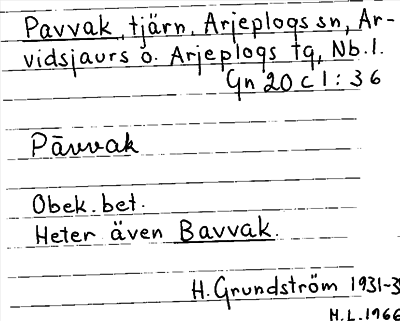 Pavvak, tjärn, Arjeplogs sn, Ar-
vidsjaurs o. Arjeplogs tg, Nb.l.
Gn 20 C 1:36
Pāvvak
Obek. bet.
Heter även Bavvak.
H. Grundström 1931-3
H.L. 1966